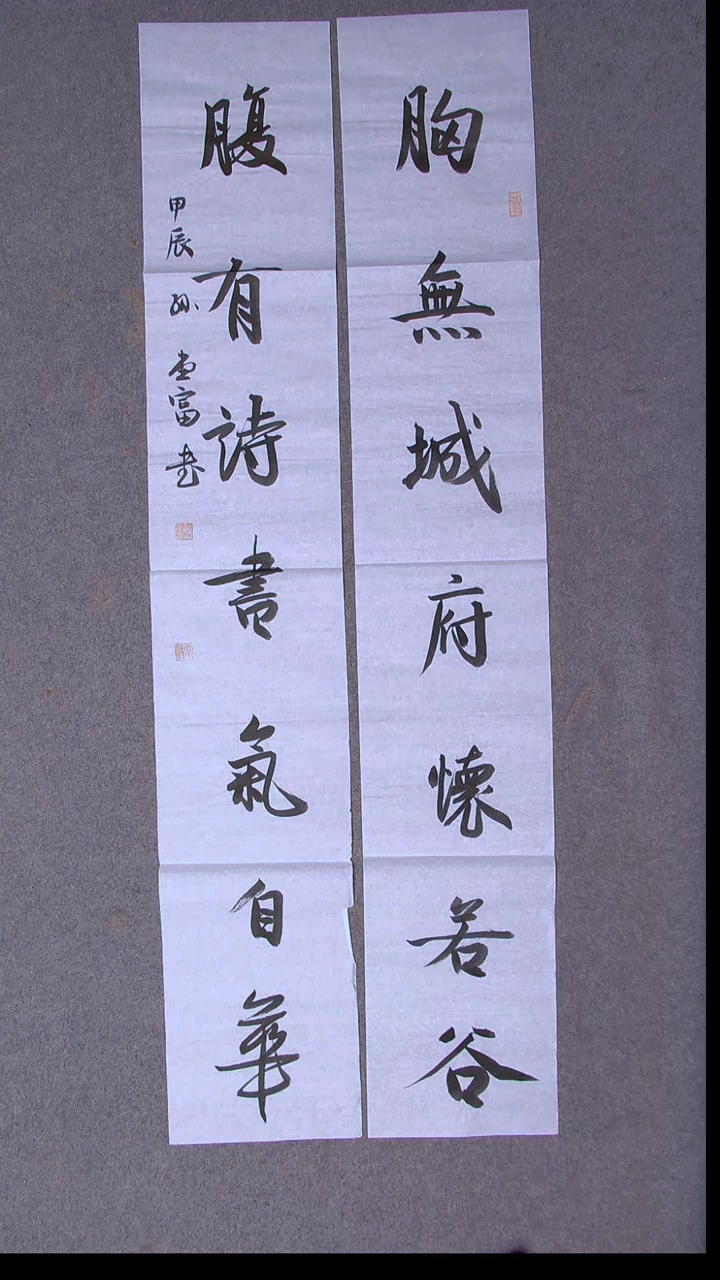 胸無城府懷若谷
腹有詩書氣自華
甲辰 孫 富書